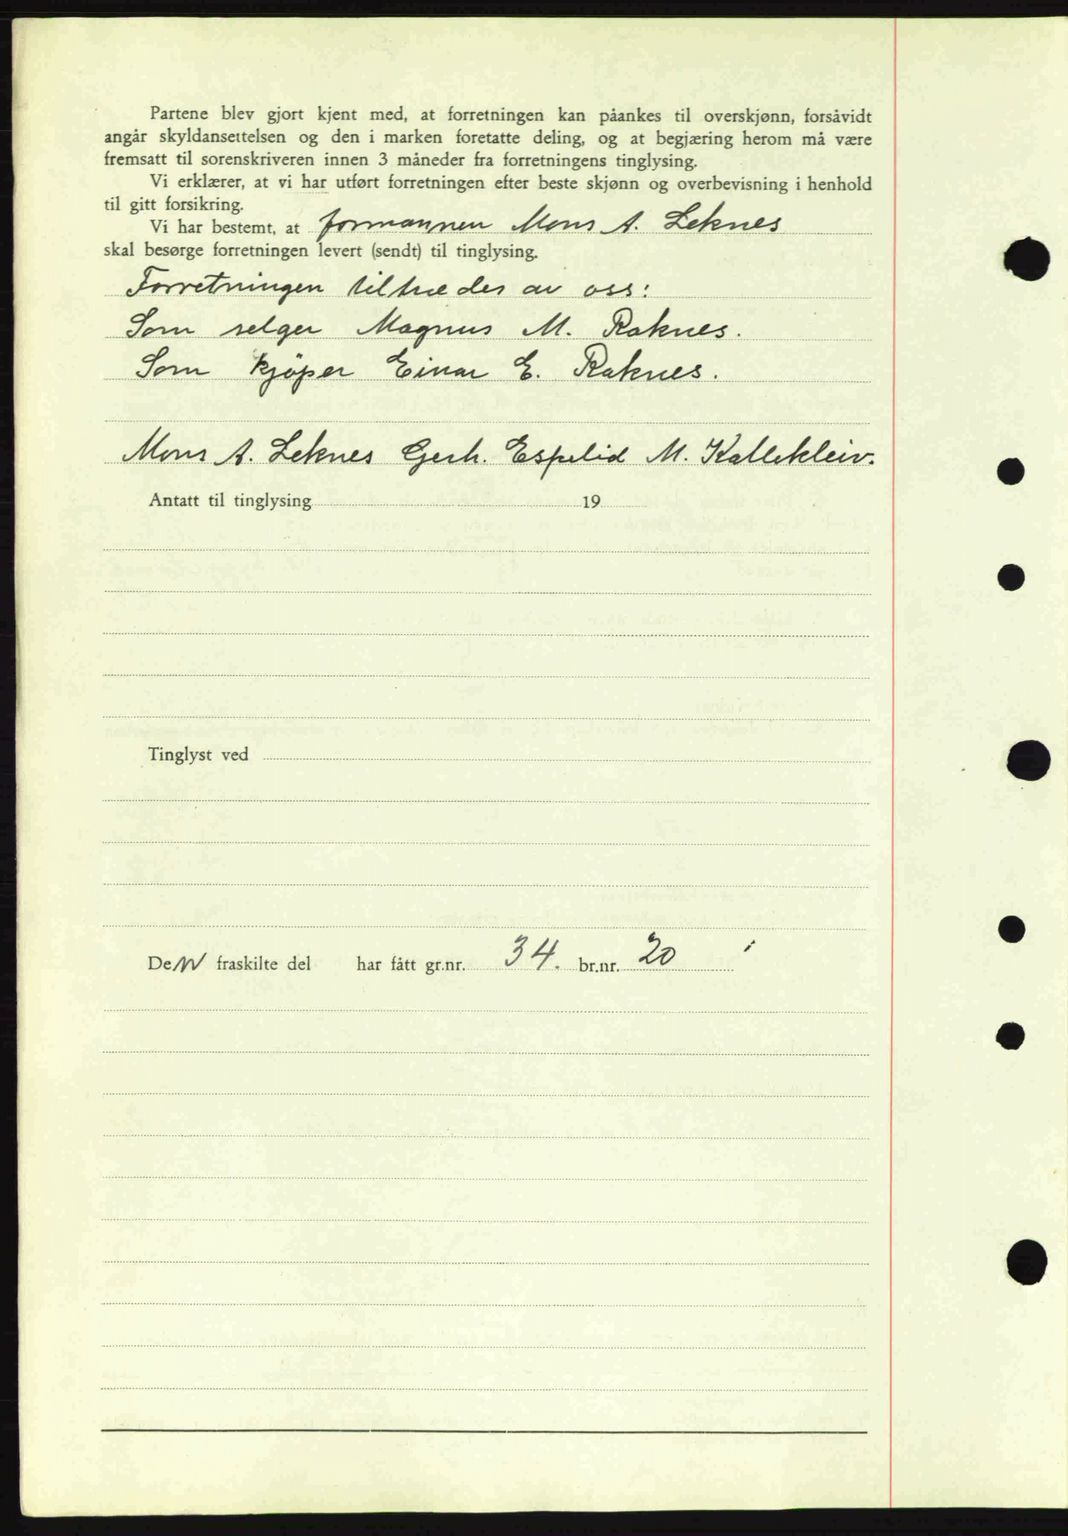 Partene blev gjort kjent med, at forretningen kan påankes til overskjønn, forsåvidt
angår skyldansettelsen og den i marken foretatte deling, og at begjæring herom må være
fremsatt til sorenskriveren innen 3 måneder fra forretningens tinglysing.
Vi erklærer, at vi har utført forretningen efter beste skjønn og overbevisning i henhold
til gitt forsikring.
Vi har bestemt, at formannen Mons A. Leknes
skal besørge forretningen levert (sendt) til tinglysing.
Forretningen tiltredes av oss:
Som selger Magnus M. Raknes.
Som kjöper Einar E. Raknes.
Mons A. Leknes Gerh. Espelid M. Kallekleiv.
Antatt til tinglysing 19
Tinglyst ved
Den fraskilte del har fått gr.nr. 34. br.nr. 20